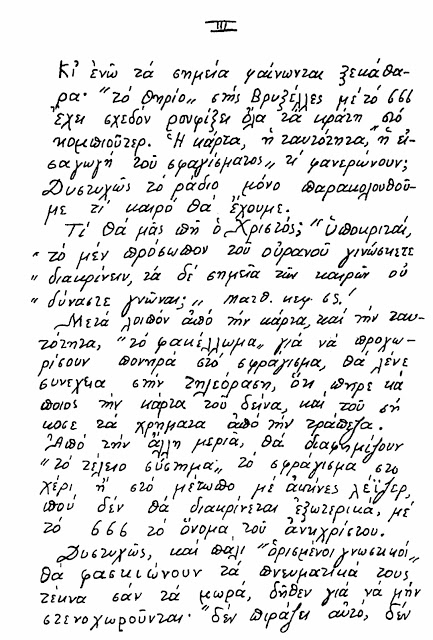 III
Κι' ἐνῶ τά σημεῖα φαίνωνται ξεκάθα-
ρα· "τό θηρίο" στῆς Βρυξέλλες μέ τό 666
ἔχει σχεδόν ρουφίξει ὅλα τά κράτη στό
κομπιοῦτερ. Ἡ κάρτα, ἡ ταυτότητα, "ἡ εἰ-
σαγωγή τοῦ σφαγίσματος" τί φανερώνουν;
Δυστυχῶς τό ράδιο μόνο παρακολουθοῦ-
με τί καιρό θά ἔχουμε.
Τί θά μᾶς πῆ ὁ Χριστός; "Ὑποκριταί,
"τό μέν πρόσωπον τοῦ οὐρανοῦ γινώσκετε
"διακρίνειν, τά δέ σημεῖα τῶν καιρῶν οὐ
"δύναστε γνῶναι;" Ματθ. κεφ. 15.!
Μετά λοιπόν ἀπό τήν κάρτα, καί τήν ταυ-
τότητα, "τό φακέλλωμα" γιά νά προχω-
ρίσουν πονηρά στό σφράγισμα, θά λένε
συνεχεια στήν τηλεόραση, ὅτι πῆρε κά
ποιος τήν κάρτα τοῦ δεῖνα, καί τοῦ σή
κοσε τά χρήματα ἀπό τήν τράπεζα.
Ἀπό τήν ἄλλη μεριά, θά διαφημίζουν
"τό τέλειο σύστημα" τό σφράγισμα στό
χέρι ἤ στό μέτωπο μέ ἀκτῖνες λέϊζερ,
πού δέν θά διακρίνεται ἐξωτερικά, μέ
τό 666 τό ὄνομα τοῦ ἀντιχρίστου.
Δυστυχῶς, καί πάλι "ὁρισμένοι γνωστικοί"
θά φασκιώνουν τά πνευματικά τους
τέκνα σάν τά μωρά, δῆθεν γιά νά μήν
στενοχωροῦνται. "δέν πιράζει αὐτό, δέν